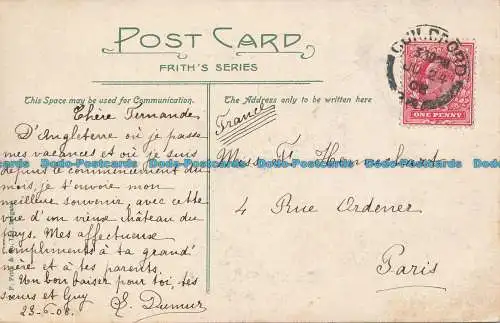 POST CARD
FRITH'S SERIES
This Space may be used for Communication.
The Address only to be written here
GUILDFORD
JU 24
08
ONE PENNY
Chère Fernande
D'Angleterre où je passe
mes vacances et où je suis
depuis le commencement du
mois, je t'envoie mon
meilleur souvenir, avec cette
vue d'un vieux château du
pays. Mes affectueux
compliments à ta grand'
mère et à tes parents.
Un bon baiser pour toi, tes
sœurs et Guy
23-6-08. E. Dumur
France
Mess. F.
4 Rue Ordener
Paris
Dodo-Postcards Dodo-Postcards Dodo-Postcards Dodo-Postcards